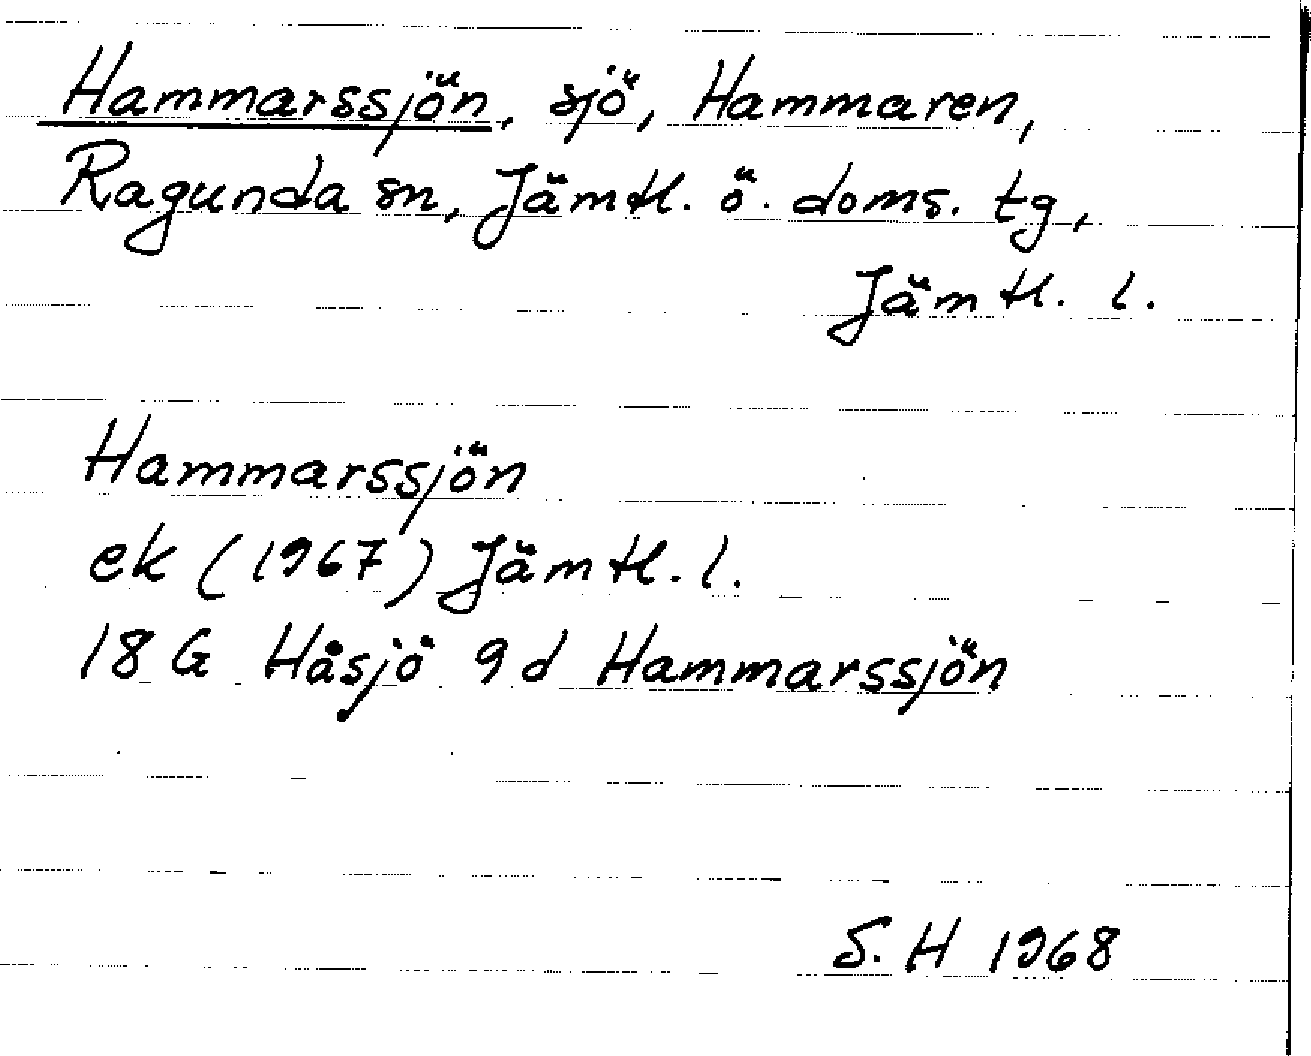 Hammarssjön, sjö, Hammaren,
Ragunda sn, Jämtl. ö. doms. tg,
Jämtl. l.
Hammarssjön
ek (1967) Jämtl. l.
18 G Håsjö 9 d Hammarssjön
S. H 1968